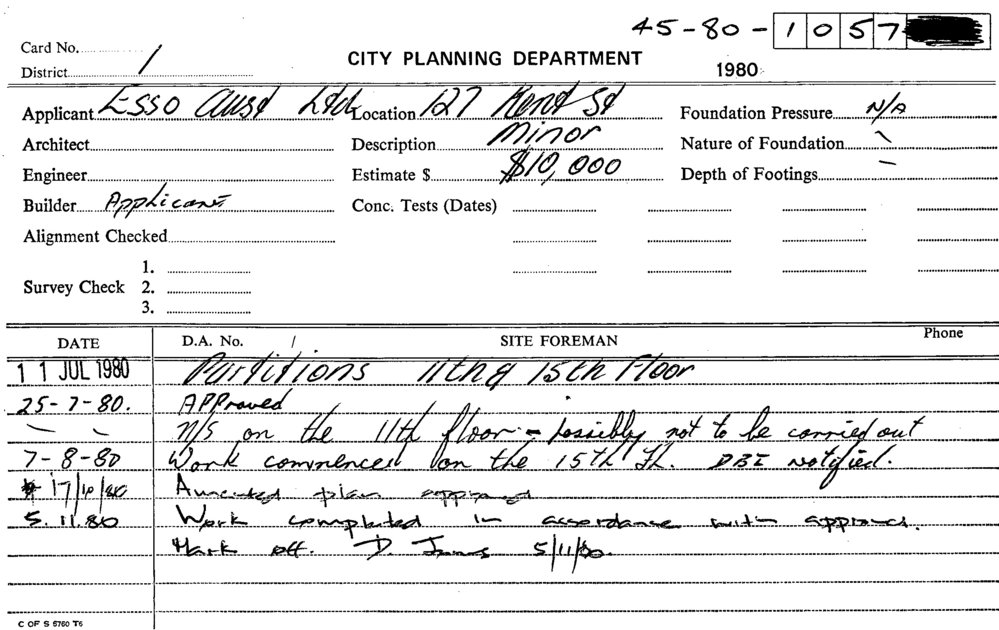 45-80-1057
Card No.
CITY PLANNING DEPARTMENT
District 1
1980
Applicant Esso Aust Ltd Location 127 Kent St Foundation Pressure N/A
Architect Description Minor Nature of Foundation \
Engineer Estimate $ $10,000 Depth of Footings –
Builder Applicant Conc. Tests (Dates)
Alignment Checked
1.
Survey Check 2.
3.
DATE D.A. No. / SITE FOREMAN Phone
11 JUL 1980 Partitions 11th & 15th Floor
25-7-80. APProved
N/S on the 11th floor - possibly not to be carried out
7-8-80 Work commenced on the 15th FL. DBI notified.
17/10/80 Amended plan approved
5.11.80 Work completed in accordance with approval.
Mark off. D. 5/11/80.
C OF S 5760 T6